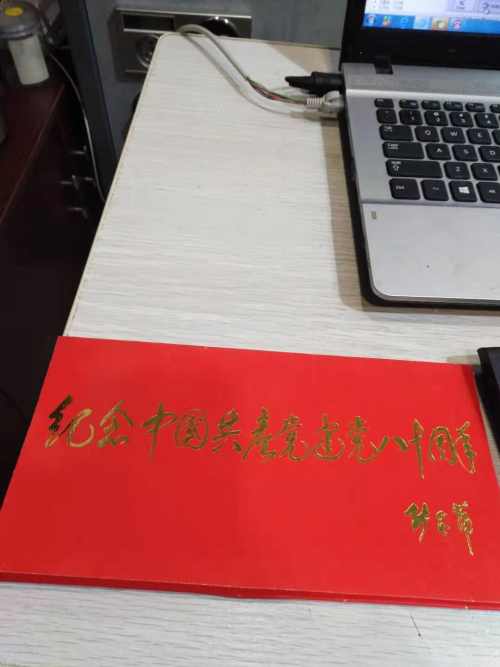 纪念中国共产党建党八十周年